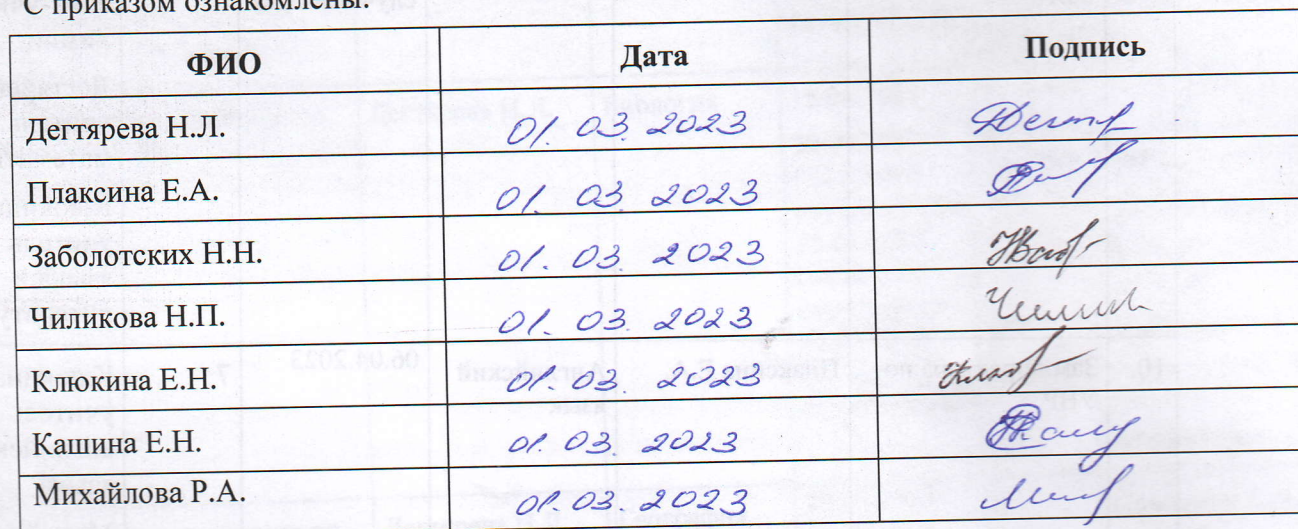 С приказом ознакомлены:
ФИО Дата Подпись
Дегтярева Н.Л. 01.03.2023
Плаксина Е.А. 01.03.2023
Заболотских Н.Н. 01.03.2023
Чиликова Н.П. 01.03.2023
Клюкина Е.Н. 01.03.2023
Кашина Е.Н. 01.03.2023
Михайлова Р.А. 01.03.2023